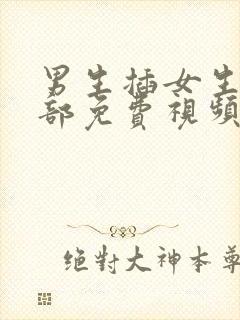 男生插女生
部免費視頻
絕對大神本尊